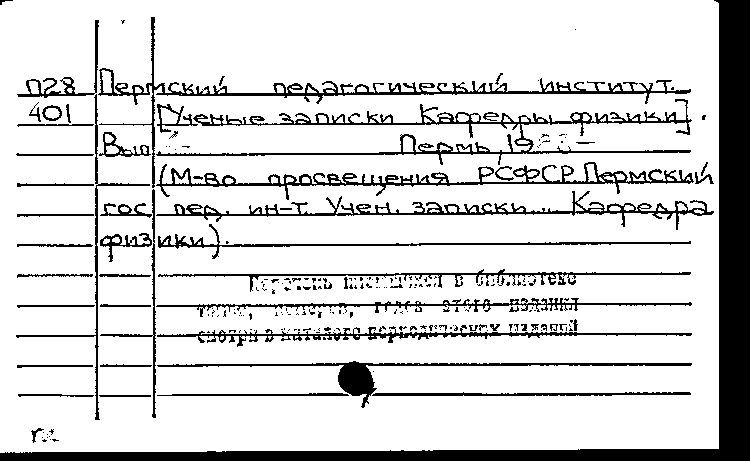 П28 Пермский педагогический институт.
401 [Ученые записки Кафедры физики].
Вып. Пермь, 19
(М-во просвещения РСФСР. Пермский
гос. пед. ин-т. Учен. записки... Кафедра
физики).
Перечень имеющихся в библиотеке
томов, номеров, годов этого издания
смотри в каталоге периодических изданий